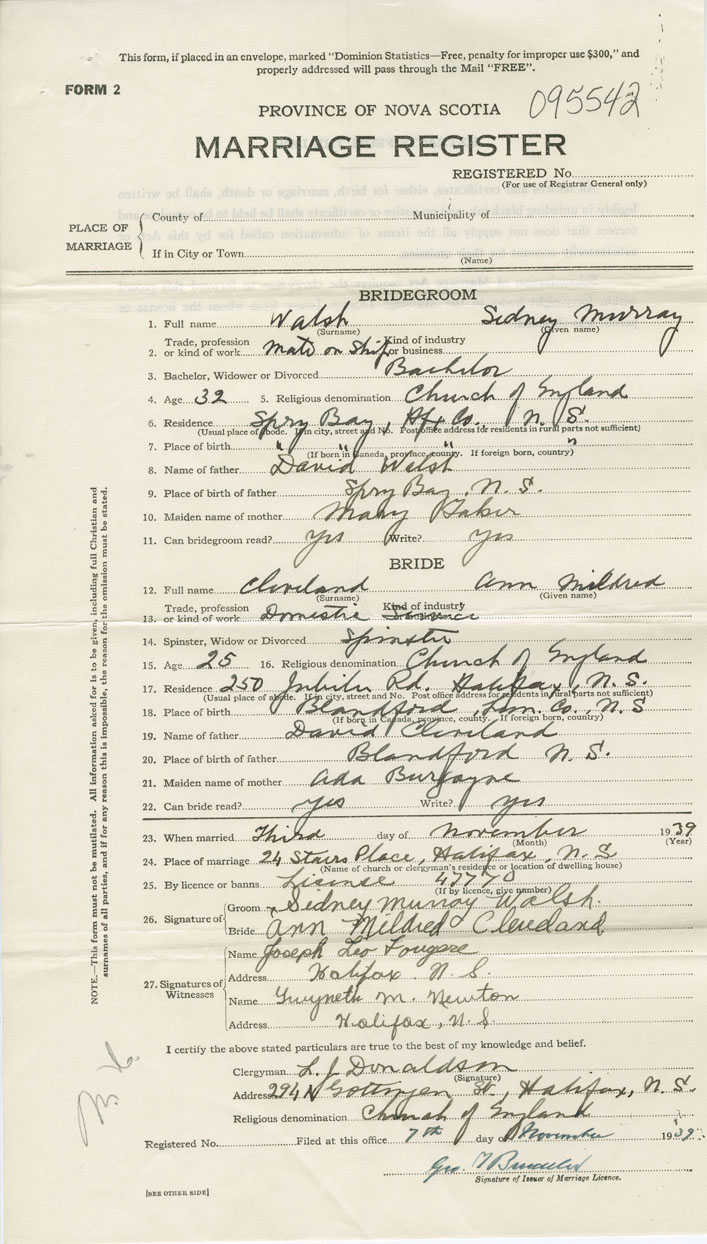 This form, if placed in an envelope, marked "Dominion Statistics—Free, penalty for improper use $300," and
properly addressed will pass through the Mail "FREE".
FORM 2
095542
PROVINCE OF NOVA SCOTIA
MARRIAGE REGISTER
REGISTERED No.
(For use of Registrar General only)
PLACE OF MARRIAGE
County of Municipality of
If in City or Town
(Name)
BRIDEGROOM
1. Full name Walsh Sidney Murray
(Surname) (Given name)
2. Trade, profession or kind of work Mate on Ship Kind of industry or business
3. Bachelor, Widower or Divorced Bachelor
4. Age 32 5. Religious denomination Church of England
6. Residence Spry Bay, Hfx Co. N. S.
(Usual place of abode. If in city, street and No. Post office address for residents in rural parts not sufficient)
7. Place of birth " " " "
(If born in Canada, province, county. If foreign born, country)
8. Name of father David Walsh
9. Place of birth of father Spry Bay, N. S.
10. Maiden name of mother Mary
11. Can bridegroom read? Yes Write? Yes
BRIDE
12. Full name Cleveland Ann Mildred
(Surname) (Given name)
13. Trade, profession or kind of work Domestic Kind of industry
14. Spinster, Widow or Divorced Spinster
15. Age 25 16. Religious denomination Church of England
17. Residence 250 Jubilee Rd. Halifax, N. S.
(Usual place of abode. If in city, street and No. Post office address for residents in rural parts not sufficient)
18. Place of birth Blandford, Lun. Co., N. S
(If born in Canada, province, county. If foreign born, country)
19. Name of father David Cleveland
20. Place of birth of father Blandford N. S.
21. Maiden name of mother Ada Burgoyne
22. Can bride read? yes Write? yes
23. When married Third day of November 1939
(Month) (Year)
24. Place of marriage 24 Stairs Place, Halifax, N. S
(Name of church or clergyman's residence or location of dwelling house)
25. By licence or banns License 47770
(If by licence, give number)
26. Signature of
Groom Sidney Murray Walsh.
Bride Ann Mildred Cleveland
27. Signatures of Witnesses
Name Joseph Leo Fougere
Address Halifax N. S.
Name Gwyneth M. Newton
Address Halifax, N. S.
I certify the above stated particulars are true to the best of my knowledge and belief.
Clergyman L. J Donaldson
(Signature)
Address 294 N Gottingen St., Halifax, N. S.
Religious denomination Church of England
Registered No. Filed at this office 7th day of November 1939
Geo.
Signature of Issuer of Marriage Licence.
[SEE OTHER SIDE]
NOTE.—This form must not be mutilated. All information asked for is to be given, including full Christian and
surnames of all parties, and if for any reason this is impossible, the reason for the omission must be stated.